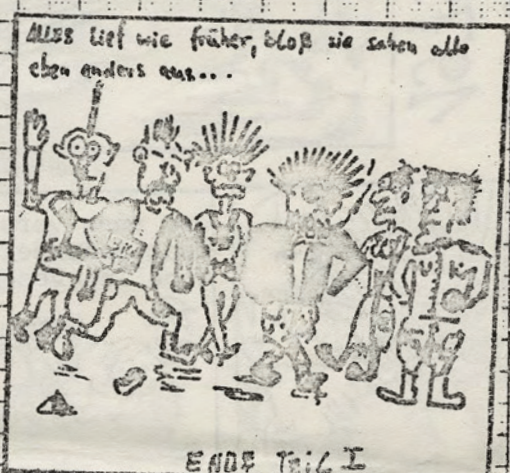 Alles lief wie früher, bloß sie sahen alle
eben anders aus...
ENDE TEIL I